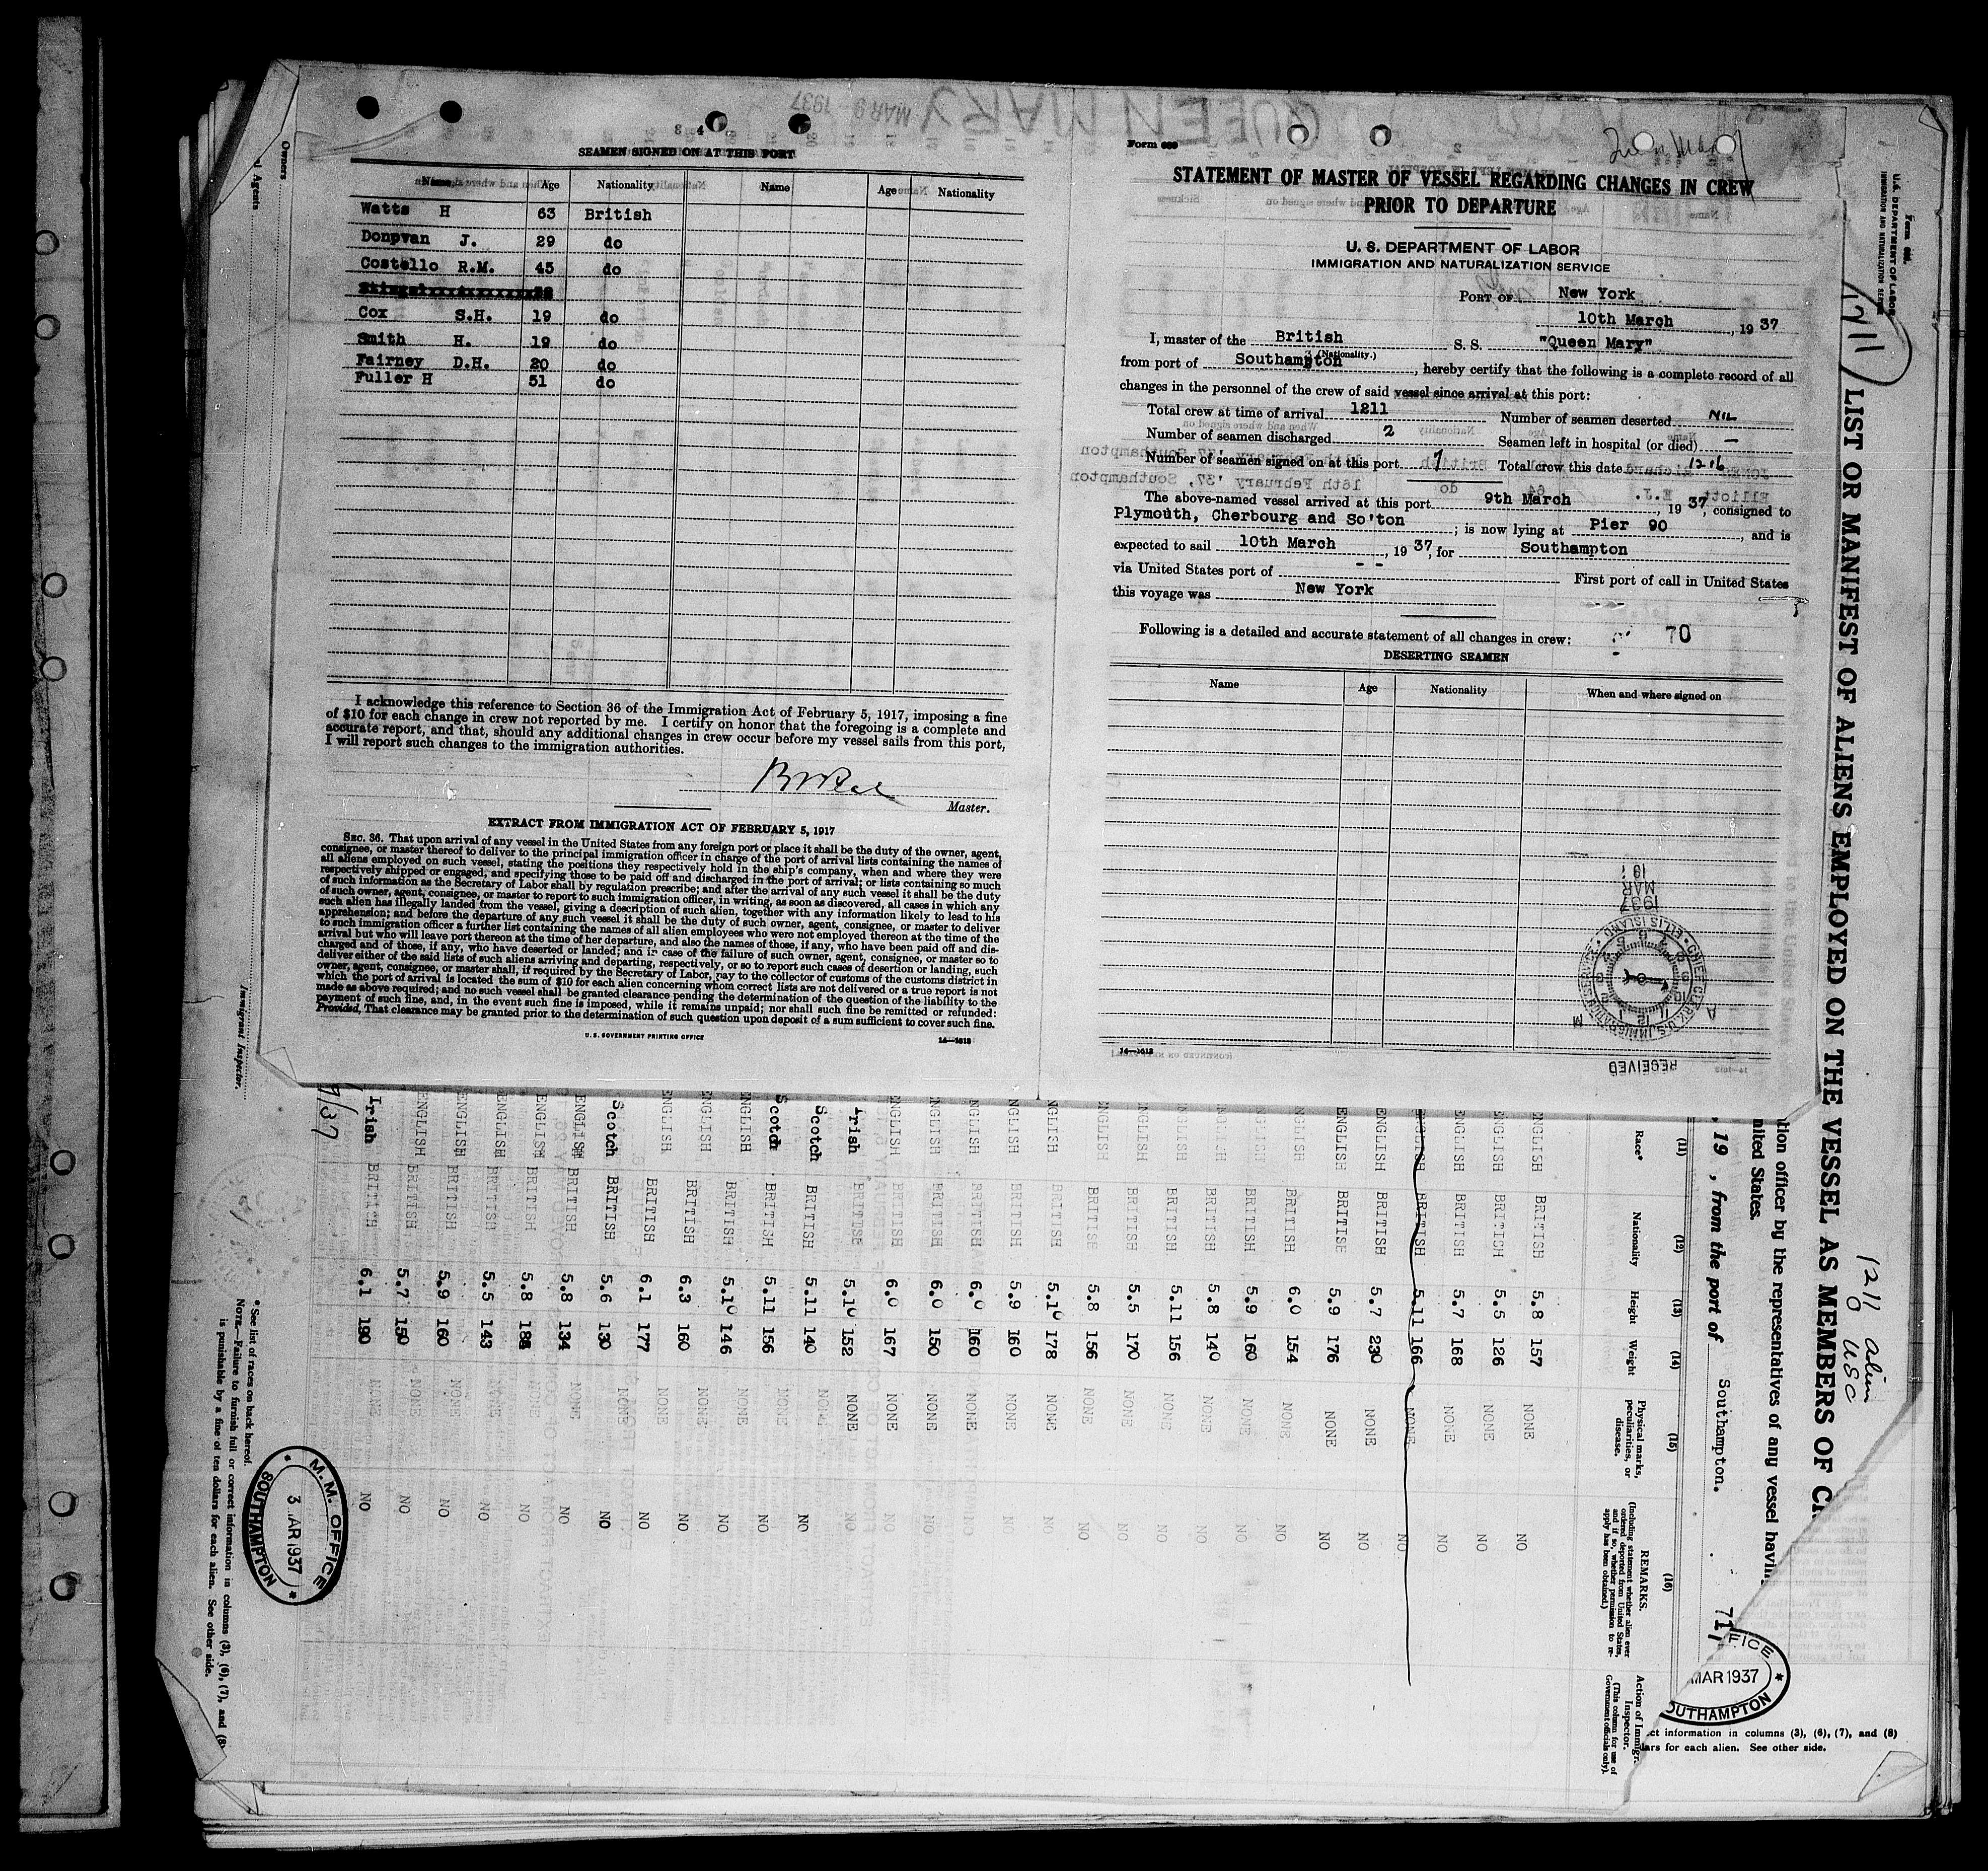 SEAMEN SIGNED ON AT THIS PORT
Name Age Nationality Name Age Nationality
Watts H 63 British
Donpvan J. 29 do
Costello R.M. 45 do
Cox S.H. 19 do
Smith H. 19 do
Fairney D.H. 20 do
Fuller H 51 do
I acknowledge this reference to Section 36 of the Immigration Act of February 5, 1917, imposing a fine
of $10 for each change in crew not reported by me. I certify on honor that the foregoing is a complete and
accurate report, and that, should any additional changes in crew occur before my vessel sails from this port,
I will report such changes to the immigration authorities.
Master.
EXTRACT FROM IMMIGRATION ACT OF FEBRUARY 5, 1917
SEC. 36. That upon arrival of any vessel in the United States from any foreign port or place it shall be the duty of the owner, agent,
consignee, or master thereof to deliver to the principal immigration officer in charge of the port of arrival lists containing the names of
all aliens employed on such vessel, stating the positions they respectively hold in the ship's company, when and where they were
respectively shipped or engaged, and specifying those to be paid off and discharged in the port of arrival; or lists containing so much
of such information as the Secretary of Labor shall by regulation prescribe; and after the arrival of any such vessel it shall be the duty
of such owner, agent, consignee, or master to report to such immigration officer, in writing, as soon as discovered, all cases in which any
such alien has illegally landed from the vessel, giving a description of such alien, together with any information likely to lead to his
apprehension; and before the departure of any such vessel it shall be the duty of such owner, agent, consignee, or master to deliver
to such immigration officer a further list containing the names of all alien employees who were not employed thereon at the time of the
arrival but who will leave port thereon at the time of her departure, and also the names of those, if any, who have been paid off and dis-
charged and of those, if any, who have deserted or landed; and in case of the failure of such owner, agent, consignee, or master so to
deliver either of the said lists of such aliens arriving and departing, respectively, or so to report such cases of desertion or landing, such
owner, agent, consignee, or master shall, if required by the Secretary of Labor, pay to the collector of customs of the customs district in
which the port of arrival is located the sum of $10 for each alien concerning whom correct lists are not delivered or a true report is not
made as above required; and no such vessel shall be granted clearance pending the determination of the question of the liability to the
payment of such fine, and, in the event such fine is imposed, while it remains unpaid; nor shall such fine be remitted or refunded:
Provided, That clearance may be granted prior to the determination of such question upon deposit of a sum sufficient to cover such fine.
U.S. GOVERNMENT PRINTING OFFICE 14—1613
QUEEN MARY
MAR 9 - 1937
Form 689
Queen Mary
STATEMENT OF MASTER OF VESSEL REGARDING CHANGES IN CREW
PRIOR TO DEPARTURE
U. S. DEPARTMENT OF LABOR
IMMIGRATION AND NATURALIZATION SERVICE
PORT OF New York
10th March, 1937
I, master of the British S. S. "Queen Mary"
(Nationality.)
from port of Southampton, hereby certify that the following is a complete record of all
changes in the personnel of the crew of said vessel since arrival at this port:
Total crew at time of arrival 1211 Number of seamen deserted NIL
Number of seamen discharged 2 Seamen left in hospital (or died) —
Number of seamen signed on at this port 7 Total crew this date 1216
The above-named vessel arrived at this port 9th March, 1937, consigned to
Plymouth, Cherbourg and So'ton; is now lying at Pier 90, and is
expected to sail 10th March, 1937, for Southampton
via United States port of - - First port of call in United States
this voyage was New York
Following is a detailed and accurate statement of all changes in crew: 70
DESERTING SEAMEN
Name Age Nationality When and where signed on
14—1613
RECEIVED
CHIEF CLERK U.S. IMMIGRATION SERVICE • ELLIS ISLAND
1937
MAR
10
A M
Owners
Agents
Immigrant Inspector.
U.S. DEPARTMENT OF LABOR
IMMIGRATION AND NATURALIZATION SERVICE
1211
LIST OR MANIFEST OF ALIENS EMPLOYED ON THE VESSEL AS MEMBERS OF C
1211 alien
0 USC
tion officer by the representatives of any vessel havin
nited States.
, 19 , from the port of Southampton.
71
(11) (12) (13) (14) (15) (16)
Race* Nationality Height Weight Physical marks, peculiarities, or disease. REMARKS. (Including statement whether alien ever ordered deported from United States, and if so, whether permission to re-apply has been obtained.) Action of Immigr. Inspector. (This column for use of Government officials only).
ENGLISH BRITISH 5.8 157 NONE NO
ENGLISH BRITISH 5.5 126 NONE NO
ENGLISH BRITISH 5.7 168 NONE NO
ENGLISH BRITISH 5.11 166 NONE NO
ENGLISH BRITISH 5.7 230 NONE NO
ENGLISH BRITISH 5.9 176 NONE NO
NGLISH BRITISH 6.0 154 NONE NO
NGLISH BRITISH 5.9 160 NONE NO
NGLISH BRITISH 5.8 140 NONE NO
NGLISH BRITISH 5.11 156 NONE NO
NGLISH BRITISH 5.5 170 NONE NO
NGLISH BRITISH 5.8 156 NONE NO
NGLISH BRITISH 5.10 178 NONE NO
NGLISH BRITISH 5.9 160 NONE NO
NGLISH BRITISH 6.0 160 NONE
NGLISH BRITISH 6.0 150 NONE NO
NGLISH BRITISH 6.0 167 NONE NO
Irish BRITISH 5.10 152 NONE NO
Scotch BRITISH 5.11 140 NONE NO
Scotch BRITISH 5.11 156 NONE NO
NGLISH BRITISH 5.10 146 NONE NO
NGLISH BRITISH 6.3 160 NONE NO
NGLISH BRITISH 6.1 177 NONE NO
Scotch BRITISH 5.6 130 NONE NO
ENGLISH BRITISH 5.8 134 NONE NO
ENGLISH BRITISH 5.8 NONE NO
ENGLISH BRITISH 5.5 143 NONE NO
ENGLISH BRITISH 5.9 160 NONE NO
ENGLISH BRITISH 5.7 150 NONE NO
Irish BRITISH 6.1 190 NONE NO
* See list of races on back hereof.
NOTE.—Failure to furnish full or correct information in columns (3), (6), (7), and (8)
is punishable by a fine of ten dollars for each alien. See other side.
M.M. OFFICE
3 MAR 1937
SOUTHAMPTON
FICE
MAR 1937
OUTHAMPTON
ct information in columns (3), (6), (7), and (8)
lars for each alien. See other side.